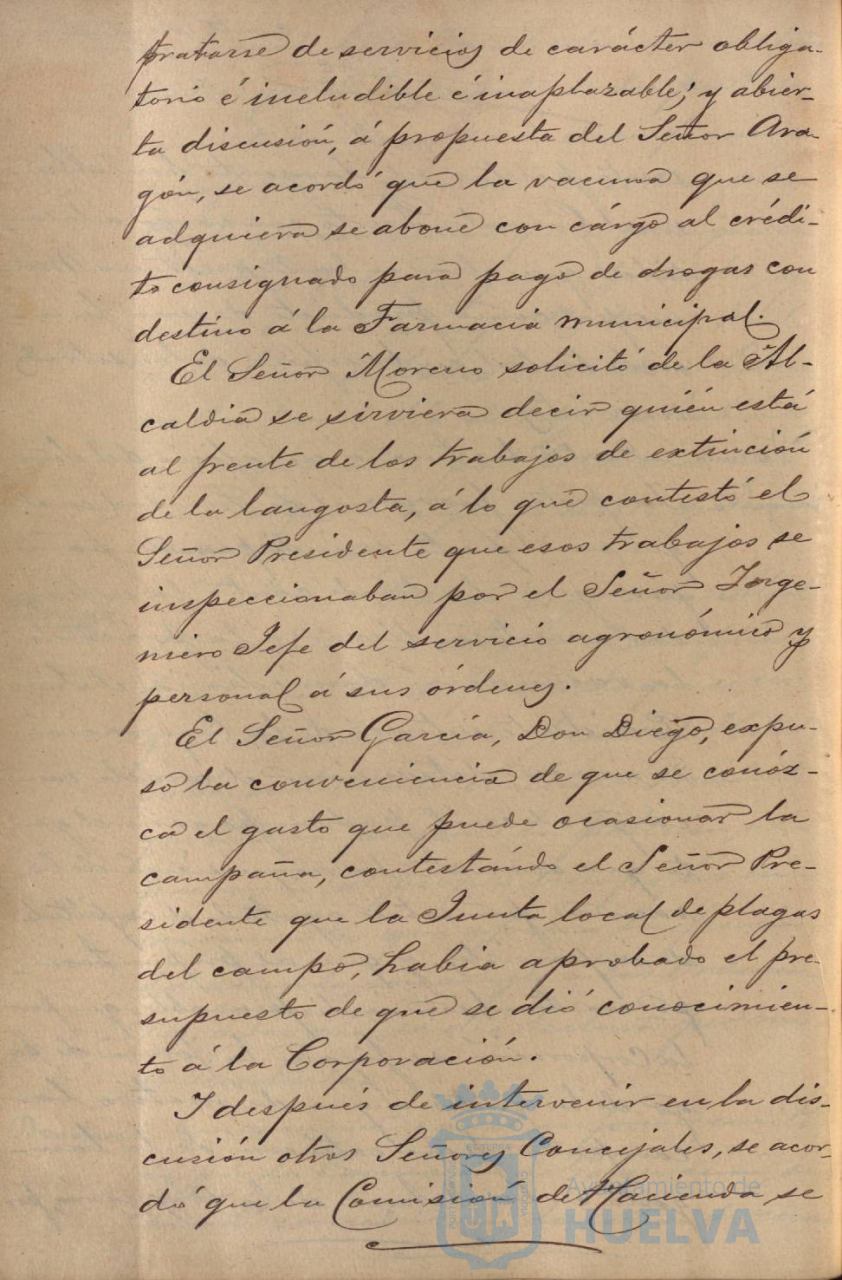 tratarse de servicios de carácter obliga-
torio é ineludible é inaplazable; y abier-
ta discusión, á propuesta del Señor Ara-
gón, se acordó que la vacuna que se
adquiera se abone con cárgo al crédi-
to consignado para pago de drogas con
destino á la Farmacia municipal.
El Señor Moreno solicitó de la Al-
caldia se sirviera decir quién está
al frente de los trabajos de extinción
de la langosta, á lo que contestó el
Señor Presidente que esos trabajos se
inspeccionaban por el Señor Inge-
niero Jefe del servicio agronómico y
personal á sus órdenes.
El Señor García, Don Diego, expu-
so la conveniencia de que se conóz-
ca el gasto que puede ocasionar la
campaña, contestándo el Señor Pre-
sidente que la Junta local de plagas
del campo, habia aprobado el pre-
supuesto de que se dió conocimien-
to á la Corporación.
I después de intervenir en la dis-
cusión otros Señores Concejales, se acor-
dó que la Comisión de Hacienda se
Ayuntamiento de
HUELVA